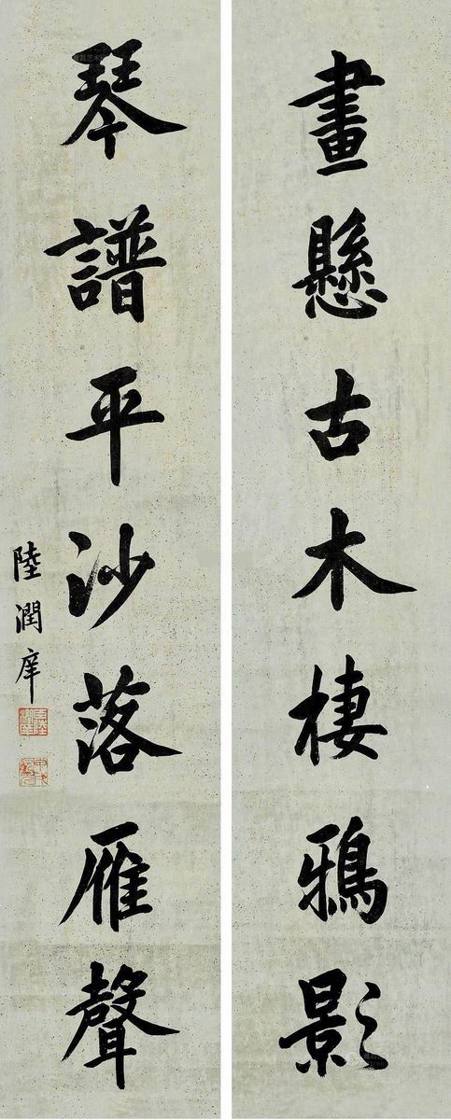 畫懸古木棲鴉影
琴譜平沙落雁聲
陸潤庠